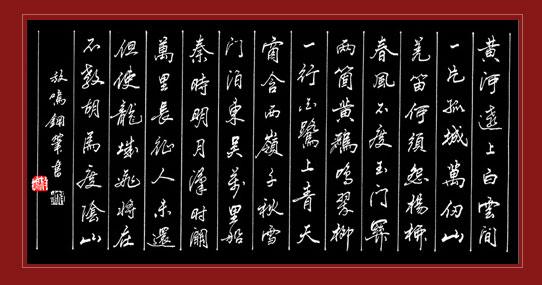 黄河遠上白雲間
一片孤城萬仞山
羌笛何須怨楊柳
春風不度玉門關
兩箇黄鸝鳴翠柳
一行白鷺上青天
窗含西嶺千秋雪
門泊東吴萬里船
秦時明月漢时關
萬里長征人未還
但使龍城飛將在
不教胡馬度陰山
鳴鋼筆書